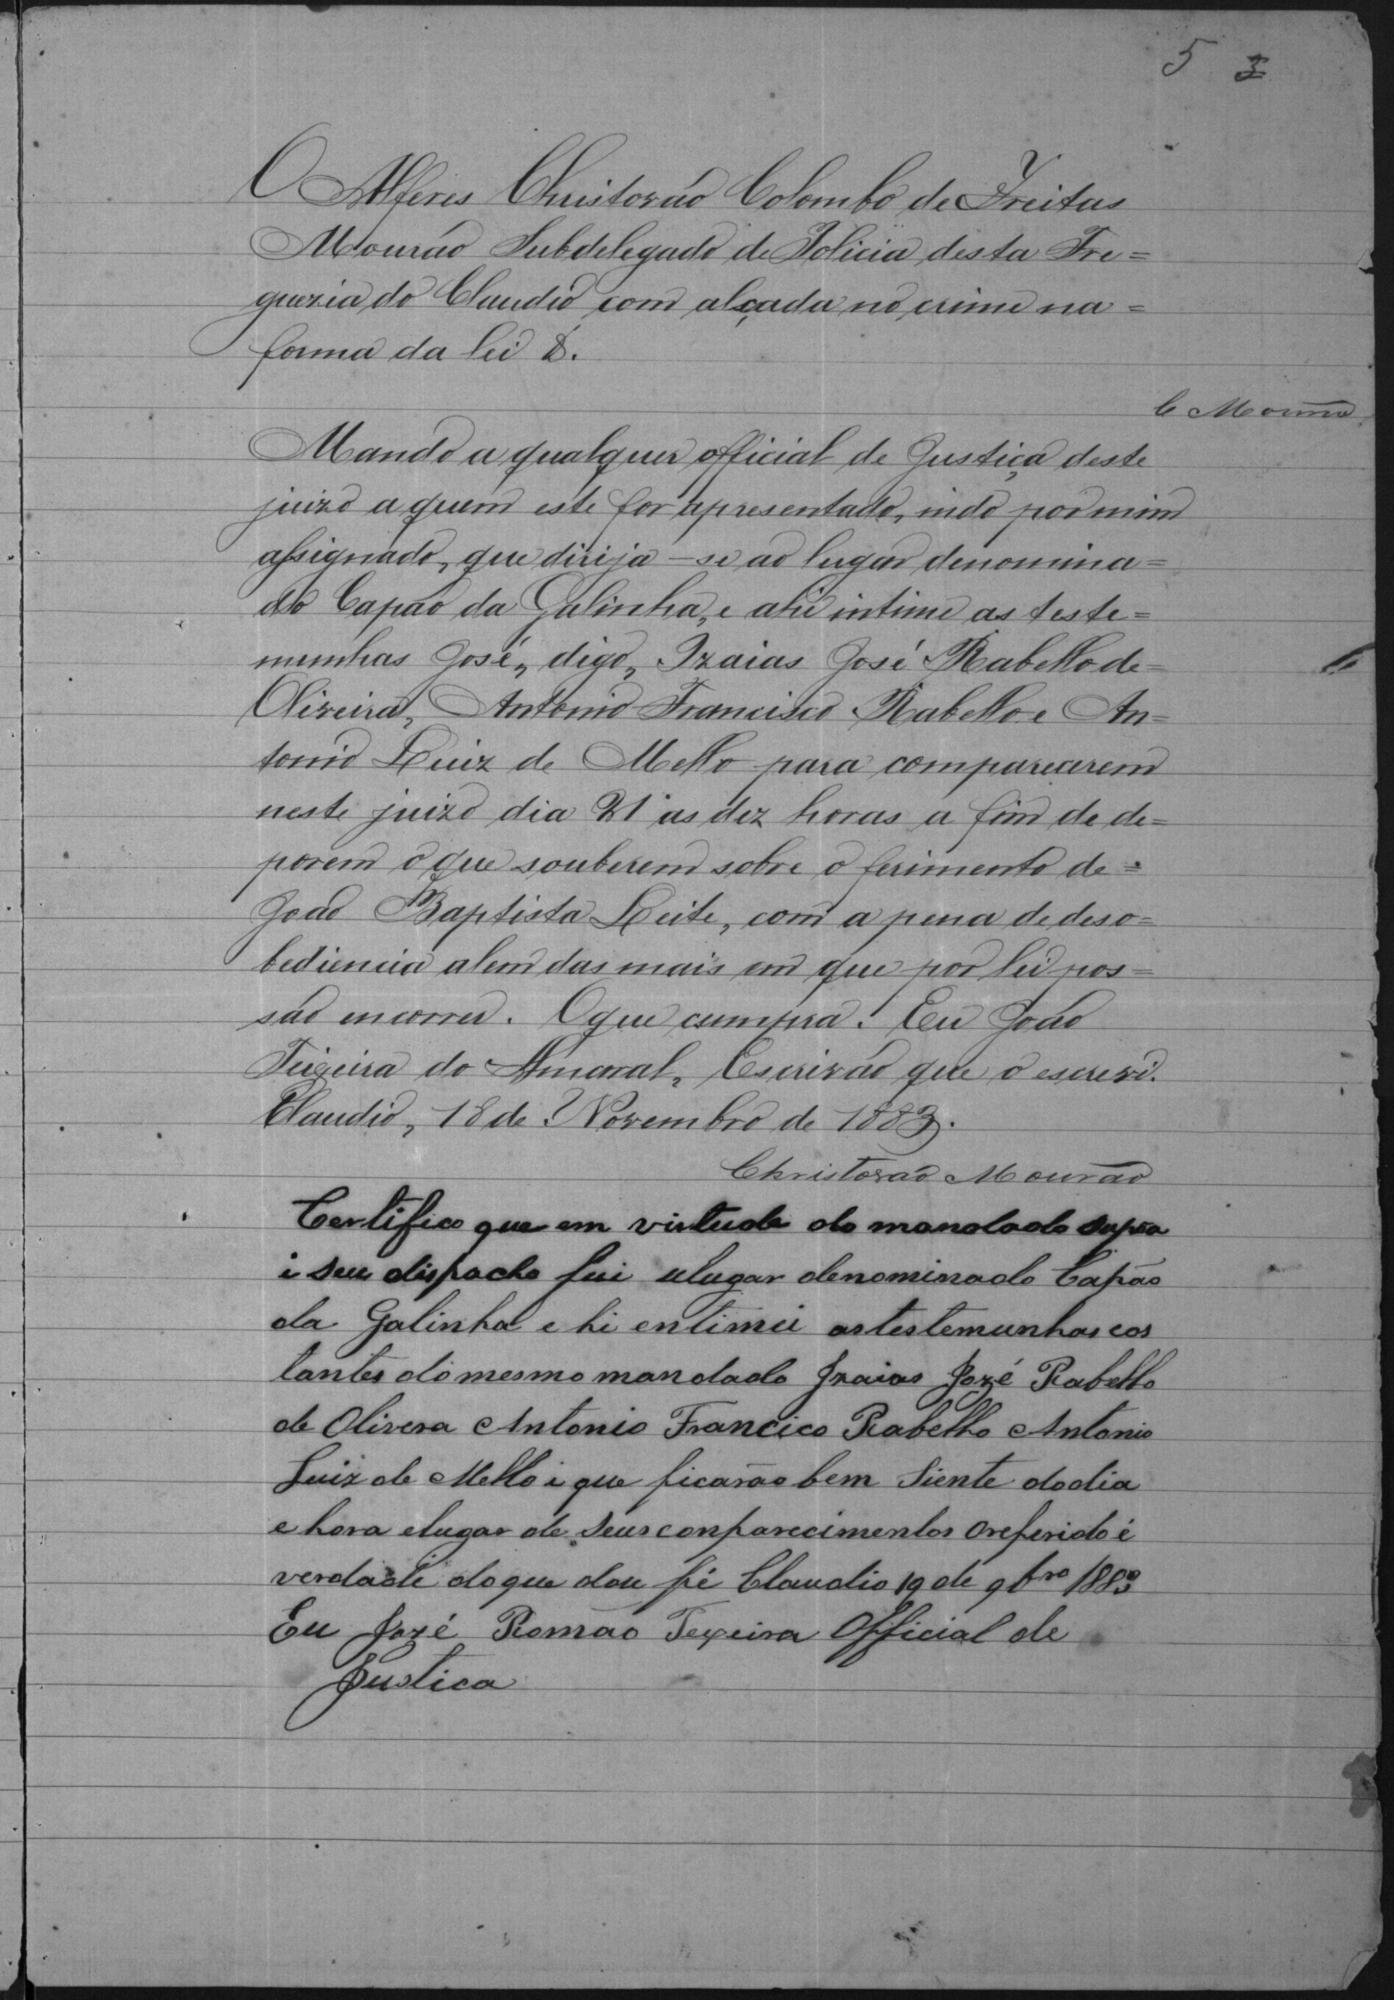 5 3
O Alferes Christovão Colombo de Freitas
Mourão Subdelegado de Policia desta Fre=
guezia do Claudio com alçada no crime na=
forma da lei &.
C Mourão
Mando a qualquer official de Justiça deste
juizo a quem este for apresentado, indo por mim
assignado, que dirija-se ao lugar denomina=
do Capão da Galinha, e ahi intime as teste=
munhas José, digo, Izaias José Rabello de=
Oliveira, Antonio Francisco Rabello e An=
tonio Luiz de Mello para comparecerem
neste juizo dia 21 as dez horas a fim de de=
porem o que souberem sobre o ferimento de=
João Baptista Leite, com a pena de deso=
bediencia alem das mais em que por lei pos=
são encorrer. O que cumpra. Eu João
Teixeira do Amaral, Escrivão que o escrevi.
Claudio, 18 de Novembro de 1883.
Christovão Mourão
Certifico que em virtude do mandado supra
i seu dispacho fui ulugar denominado Capão
da Galinha e hi entimei as testemunhas cos
tantes do mesmo mandado Izaias Jozé Rabello
de Olivera Antonio Francico Rabello Antonio
Luiz de Mello i que ficarão bem siente do dia
e hora elugar de seus conparecimentos o referido é
verdade do que dou fé Claudio 19 de 9bro 1883
Eu Jozé Romão Texeira Official de
Justica